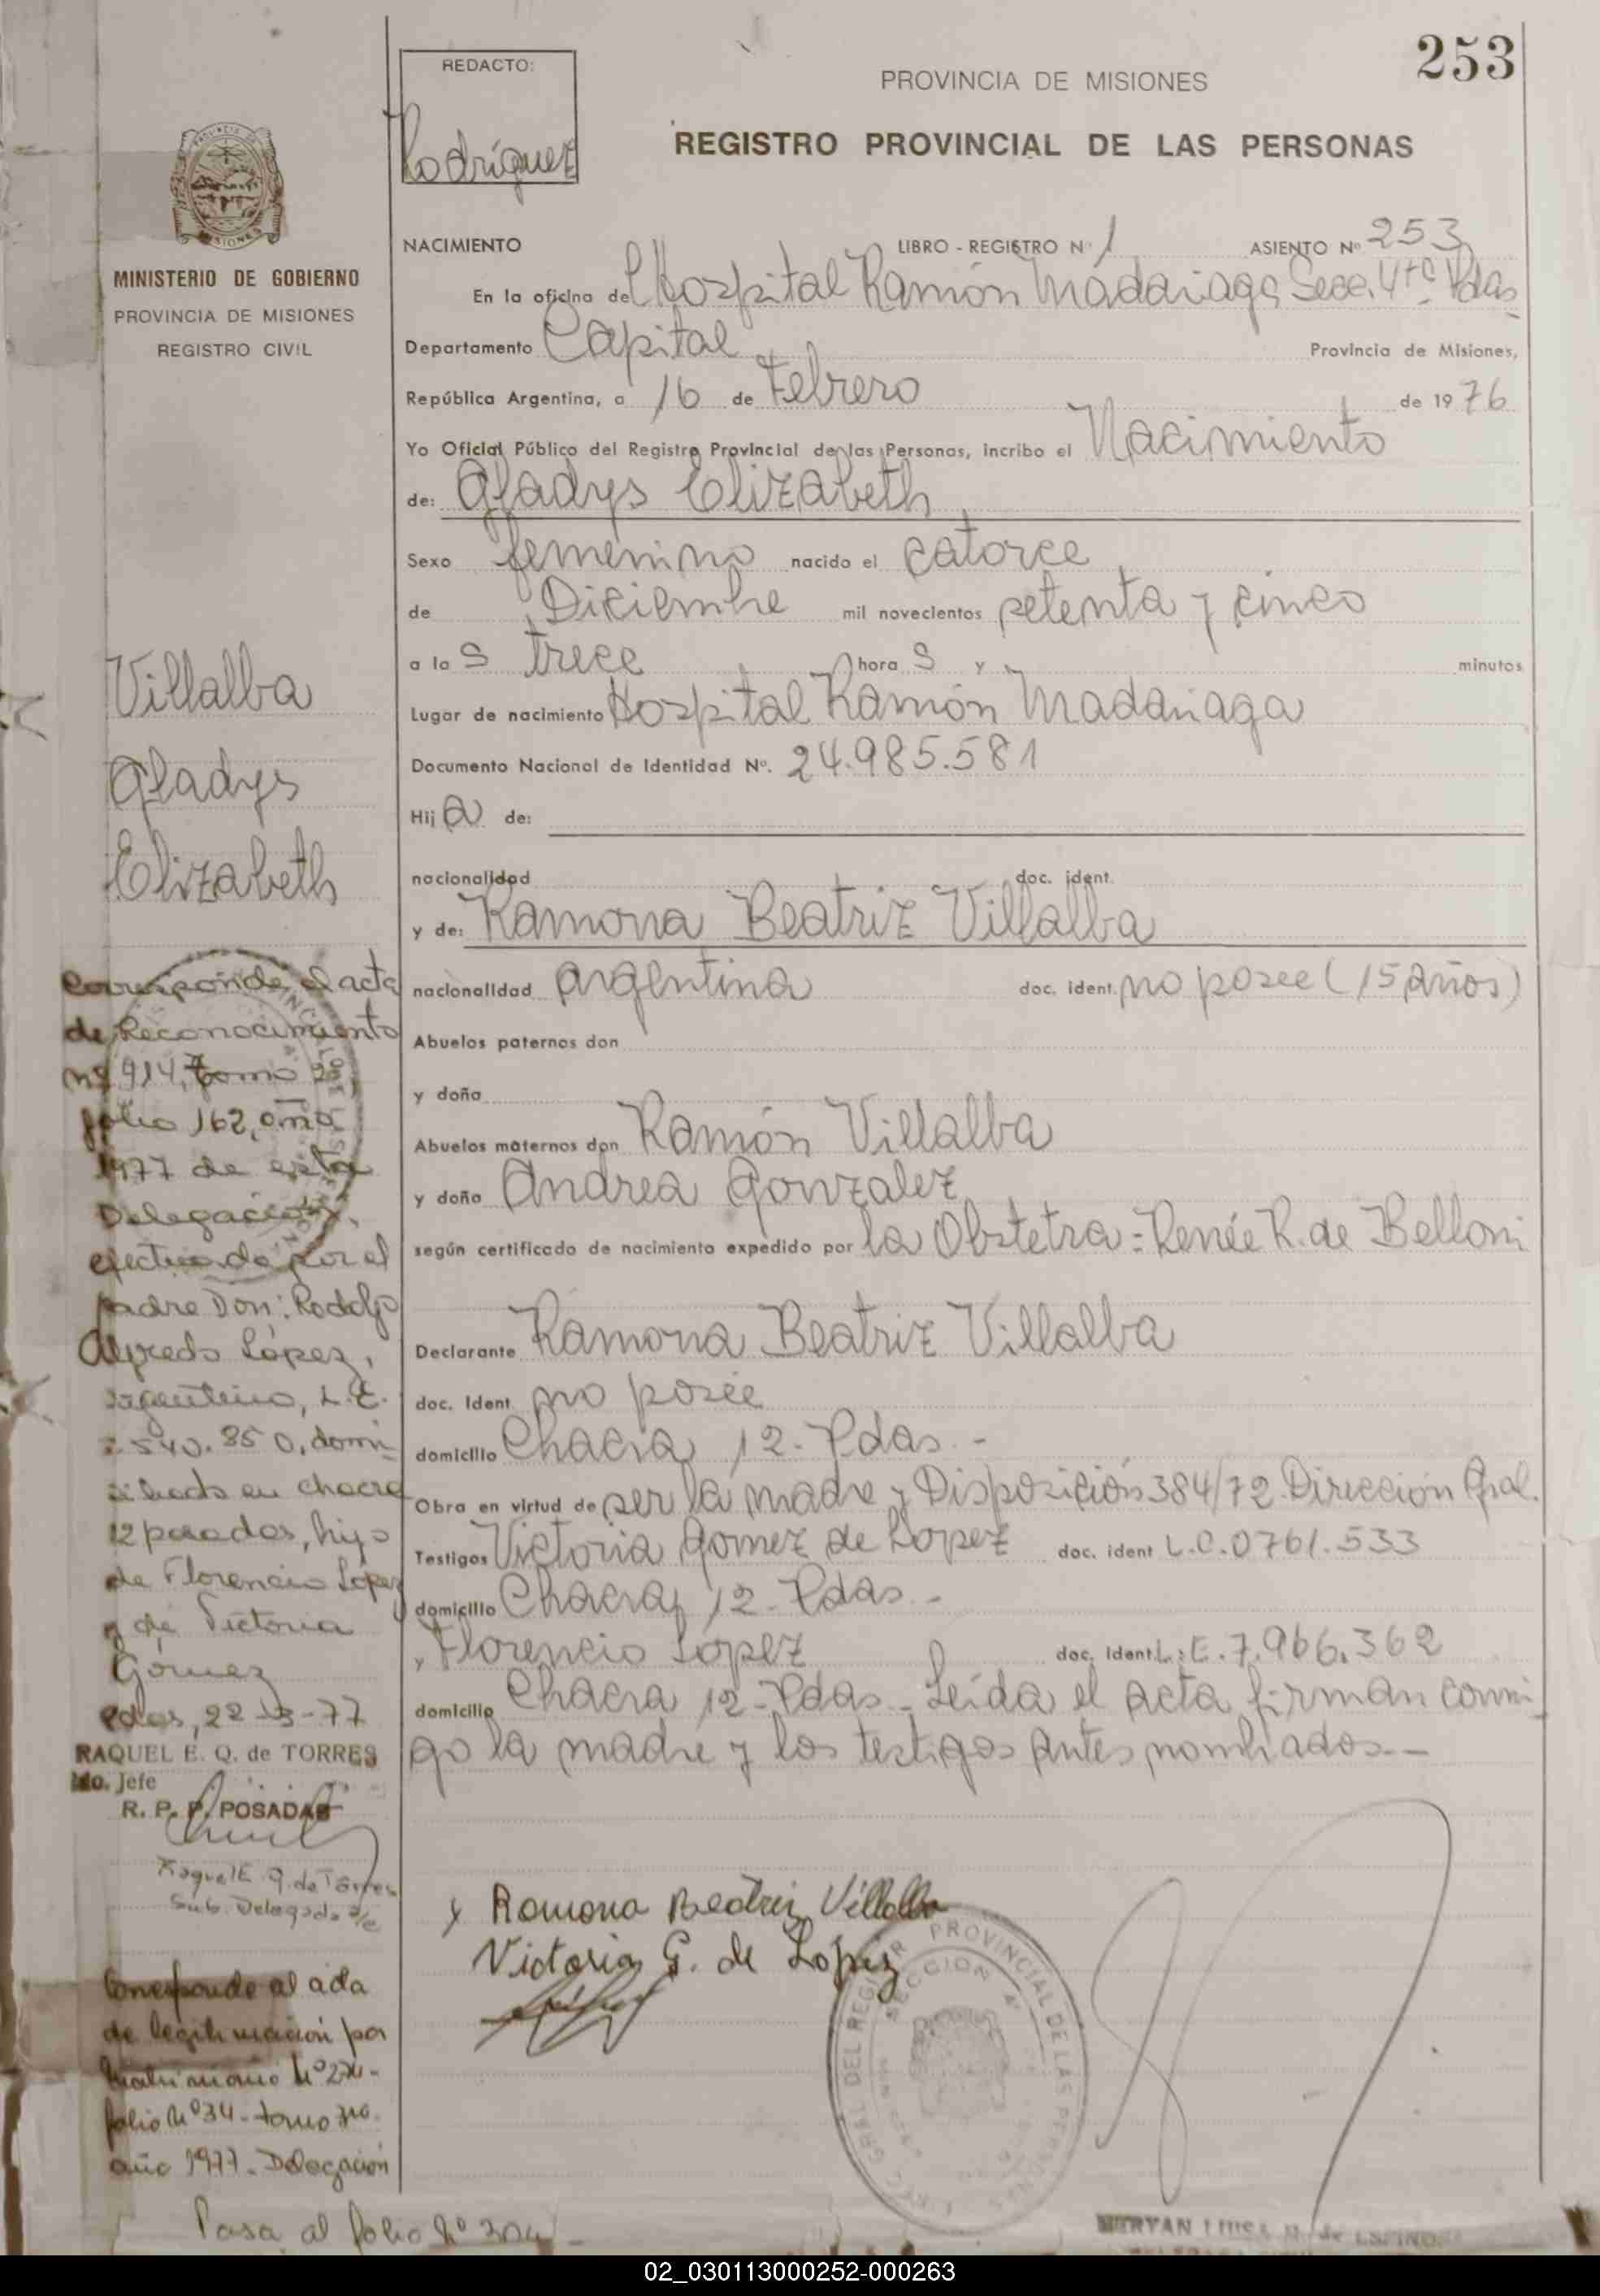 253
REDACTO:
Rodríguez
PROVINCIA DE MISIONES
REGISTRO PROVINCIAL DE LAS PERSONAS
MINISTERIO DE GOBIERNO
PROVINCIA DE MISIONES
REGISTRO CIVIL
NACIMIENTO LIBRO - REGISTRO Nº 1 ASIENTO Nº 253
En la oficina del Hospital Ramón Madariaga Secc. 4ta Pdas
Departamento Capital Provincia de Misiones,
República Argentina, a 16 de Febrero de 1976
Yo Oficial Público del Registro Provincial de las Personas, incribo el Nacimiento
de: Gladys Elizabeth
Sexo femenino nacido el catorce
de Diciembre mil novecientos setenta y cinco
a la s trece hora s y minutos
Lugar de nacimiento Hospital Ramón Madariaga
Documento Nacional de Identidad Nº. 24.985.581
Hij a de:
nacionalidad doc. ident.
y de: Ramona Beatriz Villalba
nacionalidad argentina doc. ident. no posee (15 años)
Abuelos paternos don
y doña
Abuelos maternos don Ramón Villalba
y doña Andrea Gonzalez
según certificado de nacimiento expedido por la Obstetra = Renée R. de Belloni
Declarante Ramona Beatriz Villalba
doc. Ident. no posee
domicilio Chacra 12 - Pdas. -
Obra en virtud de ser la madre y Disposición 384/72 Dirección Gral.
Testigos Victoria Gomez de Lopez doc. ident L.C. 0761.533
domicilio Chacra 12 - Pdas. -
y Florencio López doc. Ident. L.E. 7.966.362
domicilio Chacra 12 - Pdas - Leída el acta firman conmi
go la madre y los testigos antes nombrados. -
Ramona Beatriz Villalba
Victoria G. de López
Villalba
Gladys
Elizabeth
Corresponde, al acta
de Reconocimiento
nº 914, Tomo 2º
folio 162, año
1977 de esta
Delegación,
efectuado por el
padre Don: Rodolfo
Alfredo López,
argentino, L.E.
540.850, domi
ciliado en chacra
12 posadas, hijo
de Florencio Lopez
y de Victoria
Gómez
pdas, 22-3-77
RAQUEL E. Q. de TORRES
Jefe
R. P. P. POSADAS
Raquel E. Q. de Torres
Sub. Delegada a/c
Corresponde al acta
de legitimación por
Matrimonio Nº
folio Nº 34 - tomo
año 1977 - Delegación
Pasa al folio Nº 304 -
PROVINCIAL DE LAS PERSONAS
SECCION 4ª
02_030113000252-000263